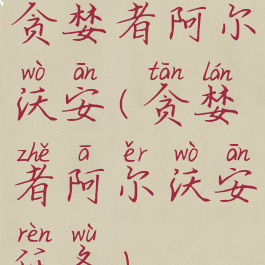 贪婪者阿尔
wò ān tān lán
沃安(贪婪
zhě ā ěr wò ān
者阿尔沃安
rèn wù
)